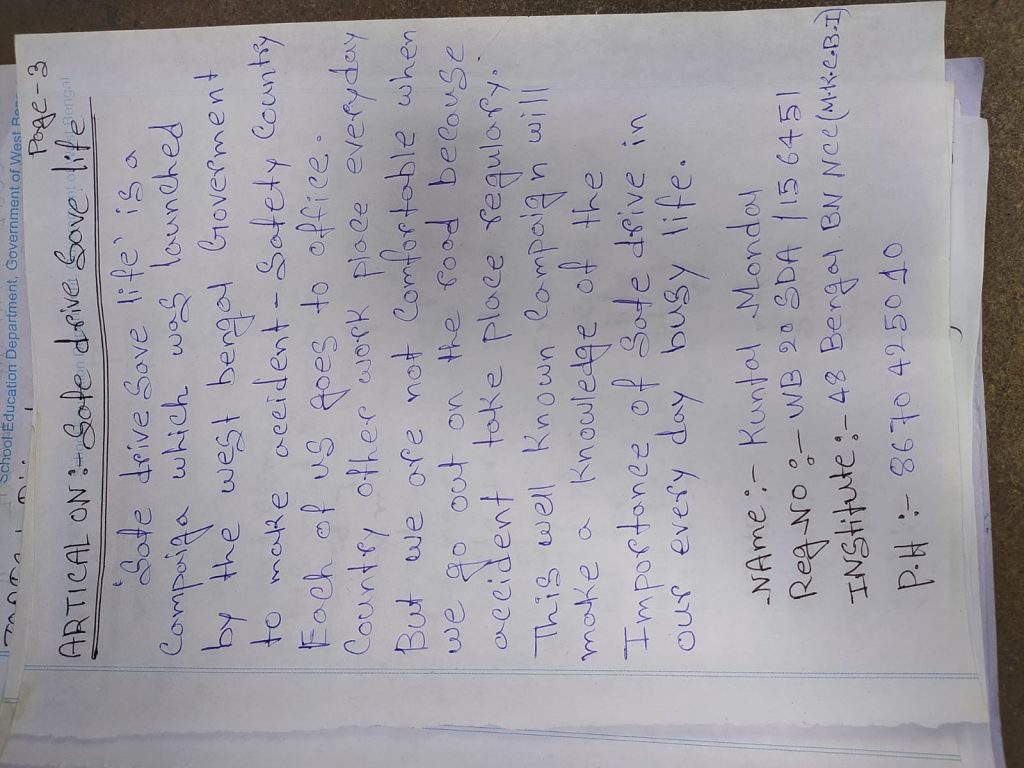 School Education Department, Government of West Ben
Page-3
ARTICAL ON:- Safe drive Save life
'Safe drive Save life' is a
Compaiga which was launched
by the west bengal Goverment
to make accident-Safety Country
Each of us goes to office.
Country other work place everyday
But we are not Comfortable when
we go out on the road because
accident take place regulary.'
This well known Campaign will
make a knowledge of the
Importance of Safe drive in
our every day busy life.
-NAme:- Kuntal Mondal
Reg-NO:- WB 20 SDA /156451
INStitute:- 48 Bengal BN NCC(M.K.C.B.I)
P.H:- 8670425010